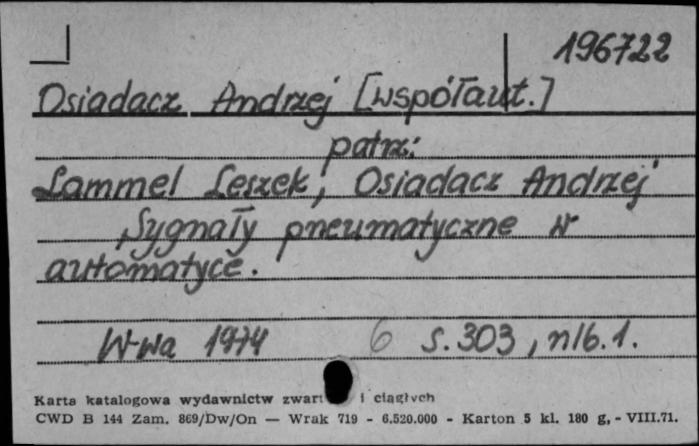 196722
Osiadacz Andrzej [współaut.]
patrz:
Lammel Leszek, Osiadacz Andrzej
Sygnały pneumatyczne w
automatyce.
W-wa 1974 6 s. 303, nlb. 1.
Karta katalogowa wydawnictw zwart i ciągłych
CWD B 144 Zam. 869/Dw/On — Wrak 719 - 6.520.000 - Karton 5 kl. 180 g, - VIII.71.